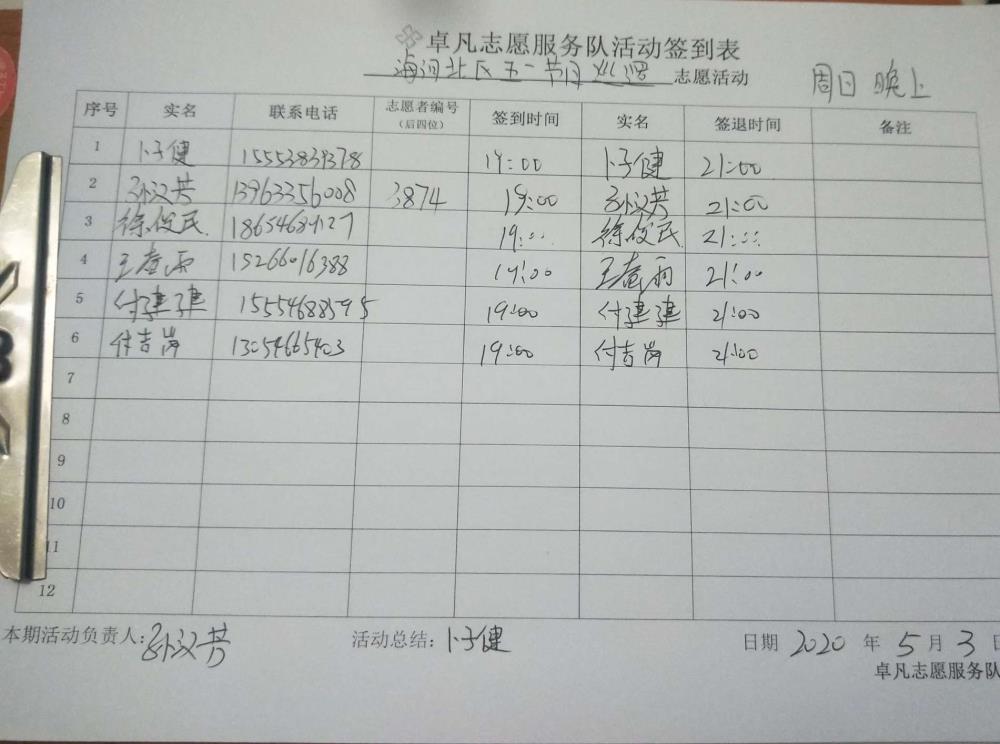 卓凡志愿服务队活动签到表
海河北区五一节日巡逻 志愿活动 周日晚上
序号 实名 联系电话 志愿者编号（后四位） 签到时间 实名 签退时间 备注
1 卜子健 19:00 卜子健 21:00
2 孙汉芳 13963356008 3874 19:00 孙汉芳 21:00
3 徐俊民 19:00 徐俊民 21:00
4 王春雨 15266016388 19:00 王春雨 21:00
5 付建建 15554688595 19:00 付建建 21:00
6 付吉岗 13054665403 19:00 付吉岗 21:00
7
8
9
10
11
12
本期活动负责人：孙汉芳 活动总结：卜子健 日期 2020 年 5 月 3 日
卓凡志愿服务队